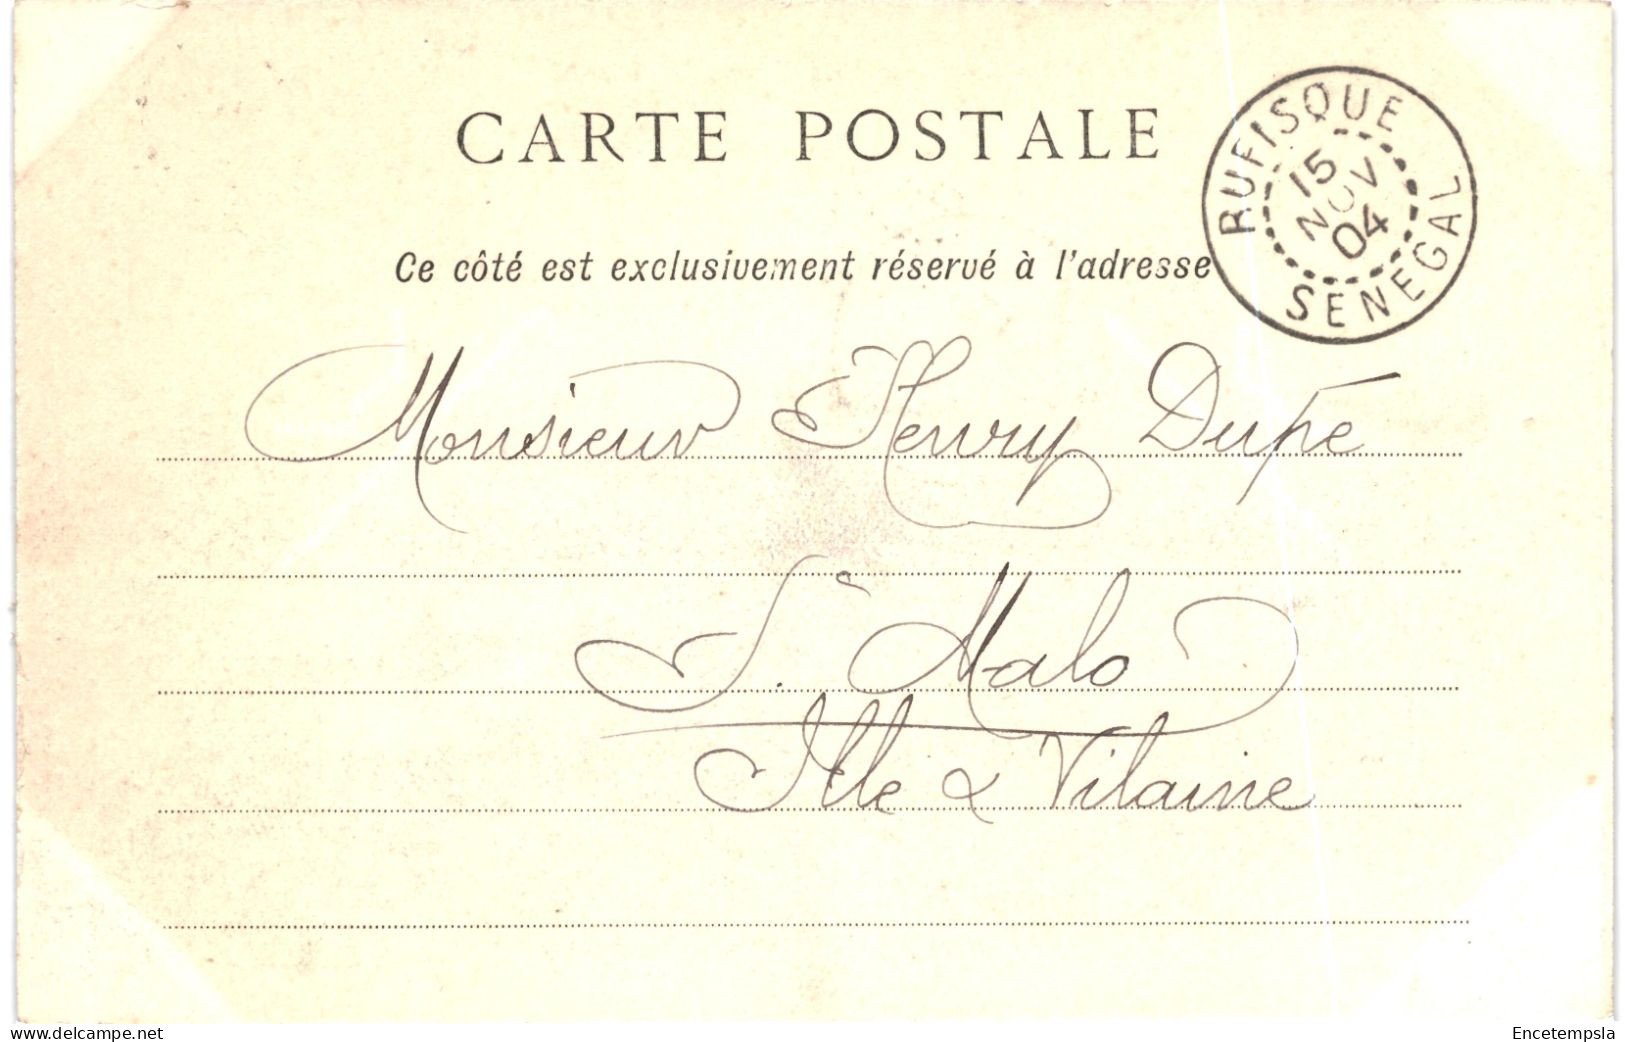 CARTE POSTALE
RUFISQUE
15
NOV
04
SENEGAL
Ce côté est exclusivement réservé à l'adresse
Monsieur Henry Dupé
St. Malo
Ille & Vilaine
delcampe.net
Encetempsla